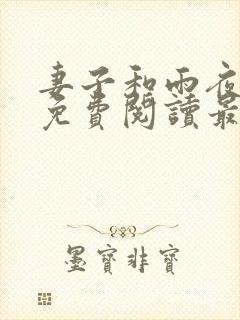 妻子和雨夜
免費閱讀最
墨寶非寶